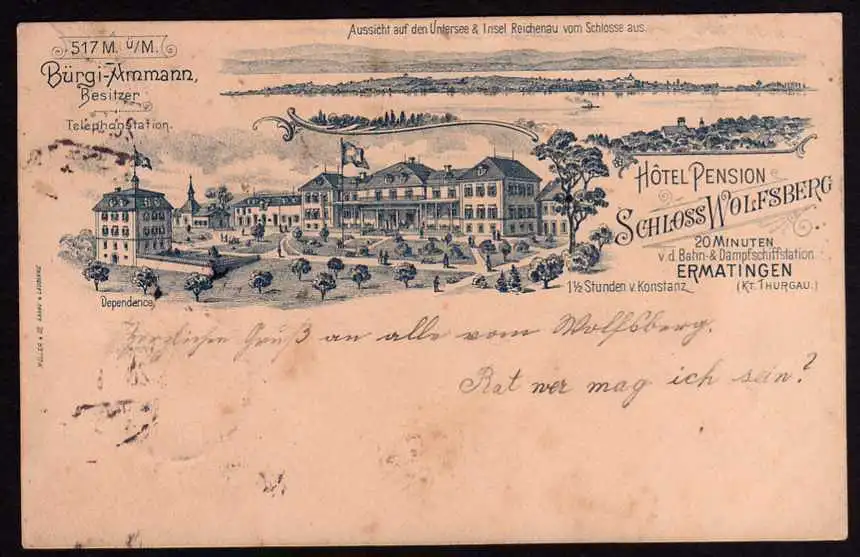 Aussicht auf den Untersee & Insel Reichenau vom Schlosse aus.
517 M. Ü/M.
Bürgi-Ammann,
Besitzer
Telephonstation.
HÔTEL PENSION
SCHLOSS WOLFSBERG
20 MINUTEN
v. d. Bahn- & Dampfschiffstation
ERMATINGEN
(KT. THURGAU.)
1½ Stunden v. Konstanz
Dependence
MÜLLER & CO. AARAU &
Herzlichen Gruß an alle vom Wolfsberg.
Rat wer mag ich sein?